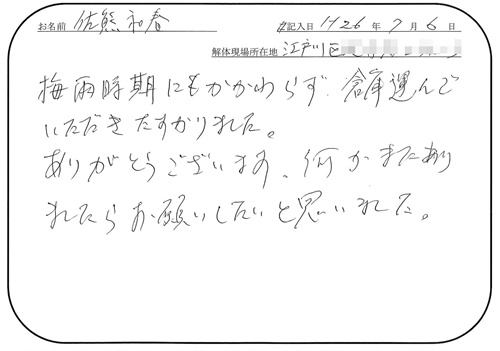 お名前 佐熊 和春 ご記入日 H26 年 7 月 6 日
解体現場所在地 江戸川区
梅雨時期にもかかわらず、倉庫運んで
いただきたすかりました。
ありがとうございます、何かまたあり
ましたらお願いしたいと思いました。